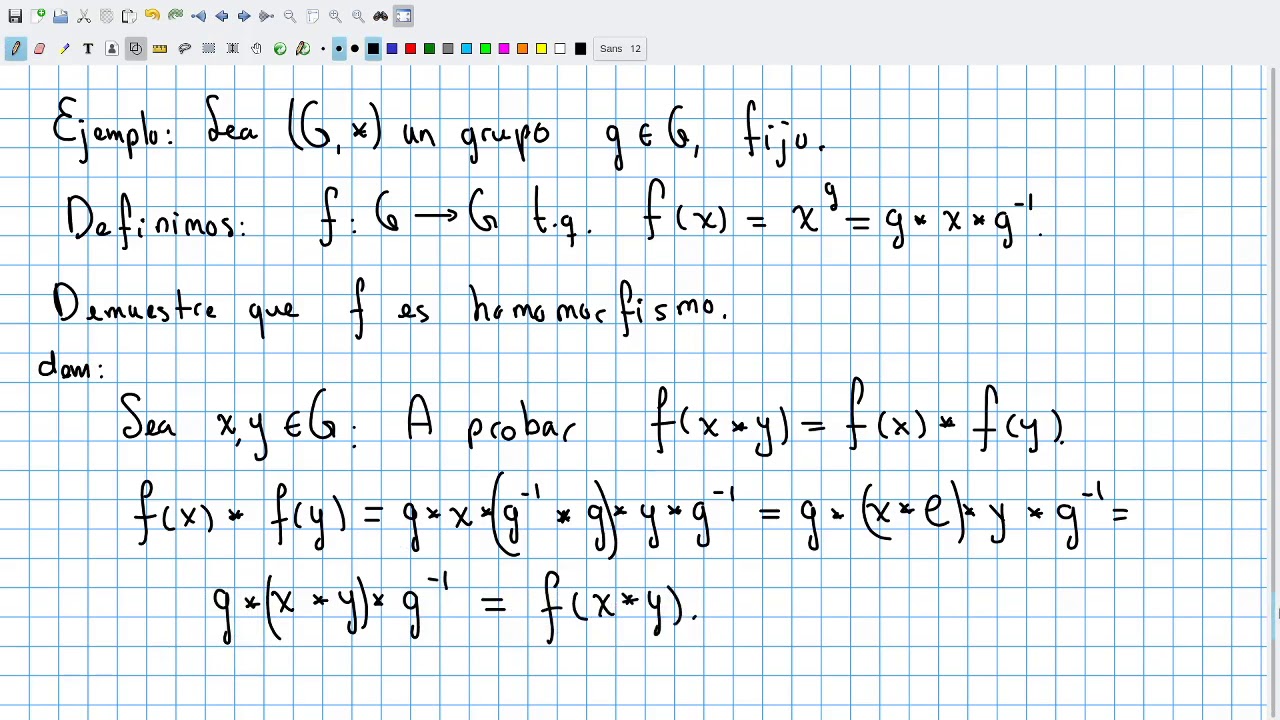 Sans 12
Ejemplo: Sea (G, *) un grupo g ∈ G, fijo.
Definimos: f: G → G t.q. f(x) = x^g = g * x * g^-1.
Demuestre que f es homomorfismo.
dem:
Sea x, y ∈ G: A probar f(x * y) = f(x) * f(y).
f(x) * f(y) = g * x * (g^-1 * g) * y * g^-1 = g * (x * e) * y * g^-1 =
g * (x * y) * g^-1 = f(x * y).